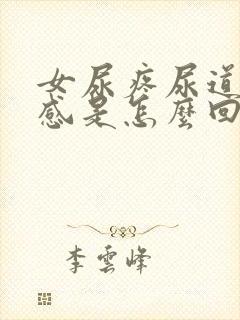 女尿疼尿道
感是怎麼回
李雲峰